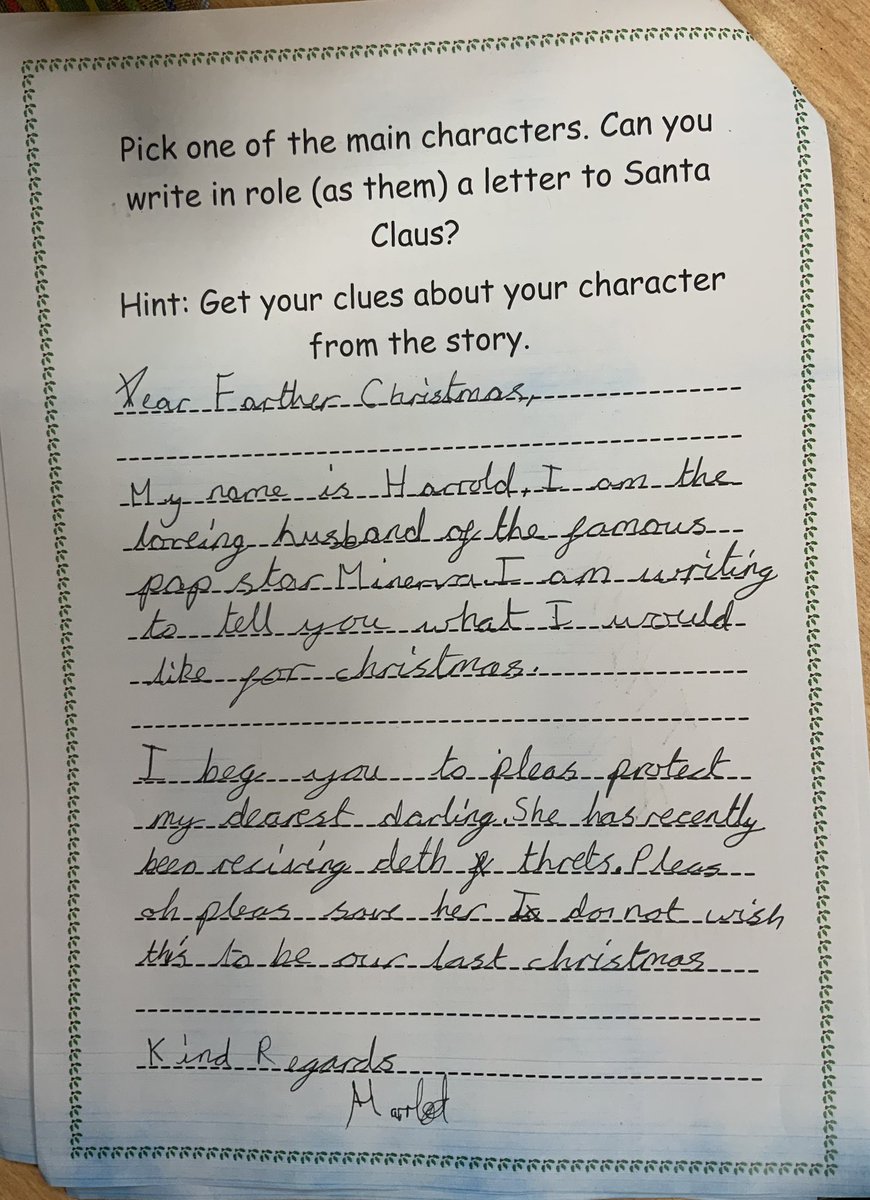 Pick one of the main characters. Can you
write in role (as them) a letter to Santa
Claus?
Hint: Get your clues about your character
from the story.
Dear Farther Christmas,
My name is Harrold. I am the
loveing husband of the famous
pop star Minerva. I am writing
to tell you what I would
like for christmas.
I beg you to pleas protect
my dearest darling. She has recently
been reciving deth threts. Pleas
oh pleas save her I do not wish
this to be our last christmas
Kind Regards